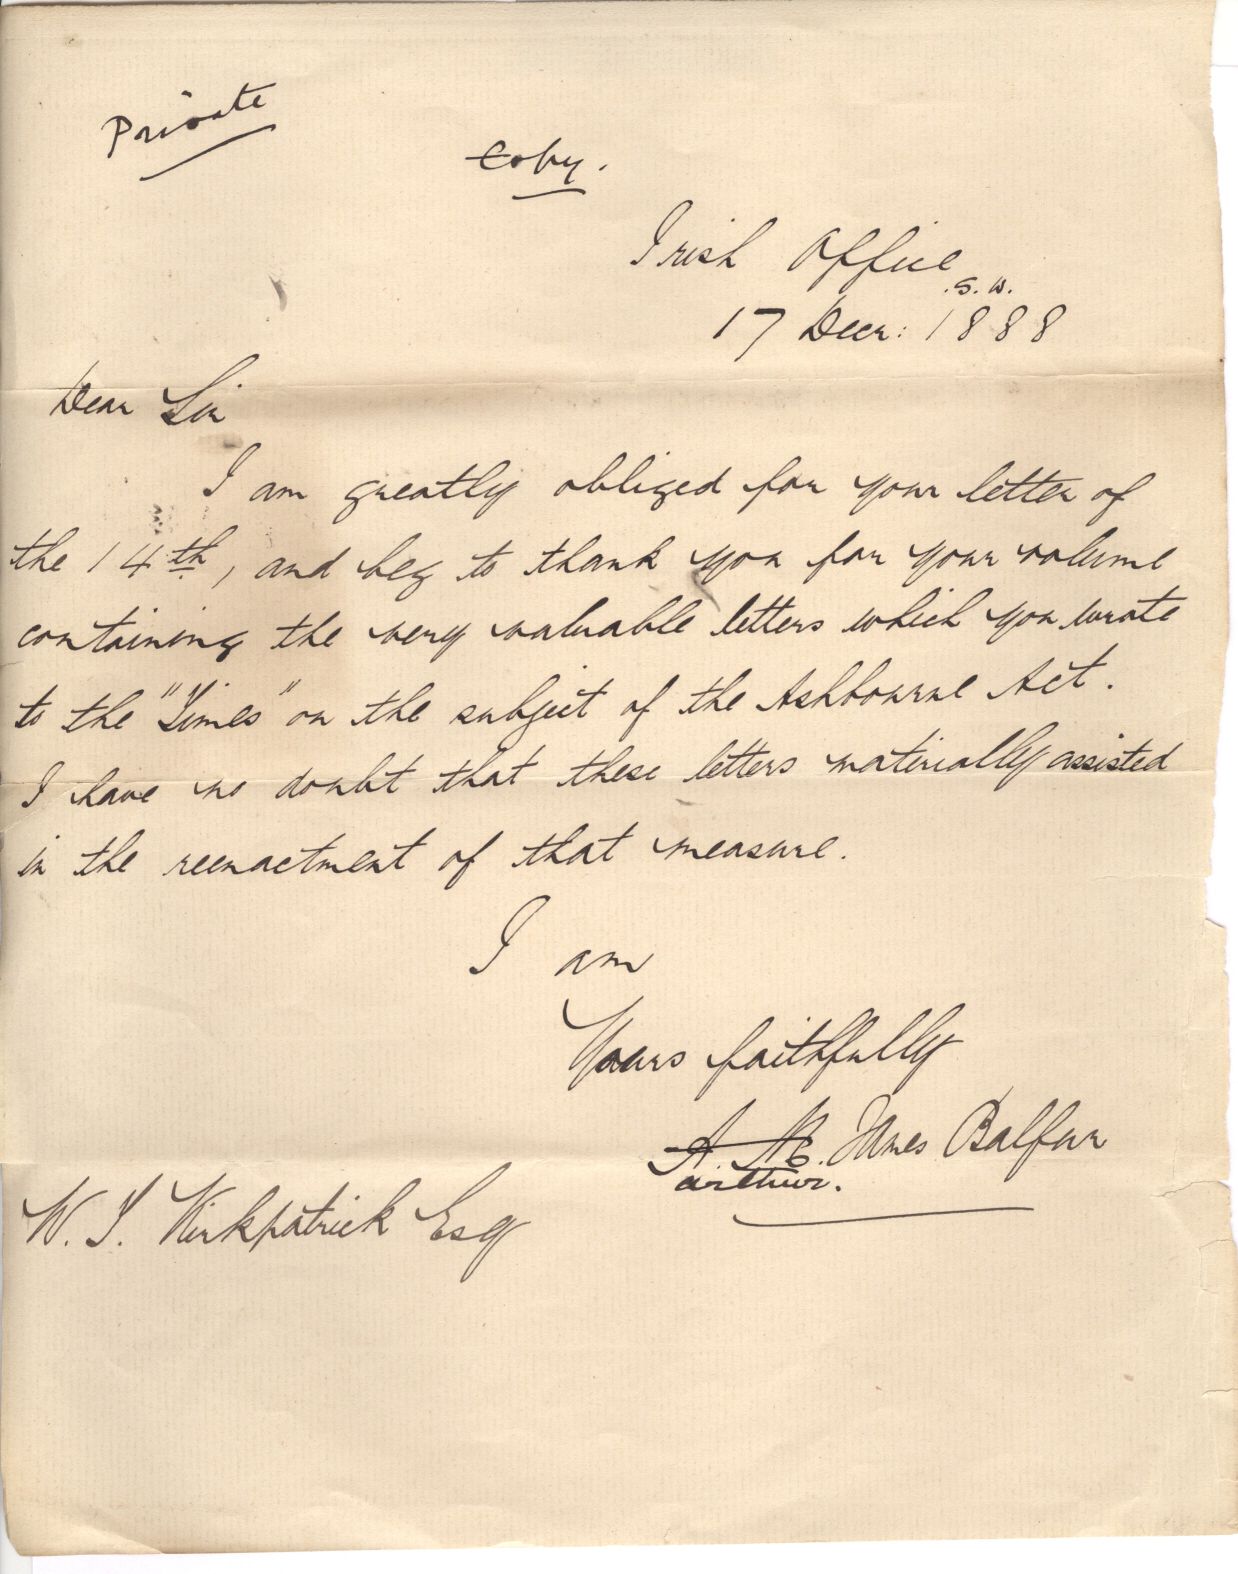 Private
Copy.
Irish Office
S.W.
17 Decr: 1888
Dear Sir
I am greatly obliged for your letter of
the 14th, and beg to thank you for your volume
containing the very valuable letters which you wrote
to the "Times" on the subject of the Ashbourne Act.
I have no doubt that these letters materially assisted
in the reenactment of that measure.
I am
Yours faithfully
A. James Balfour
arthur.
W. J. Kirkpatrick Esq